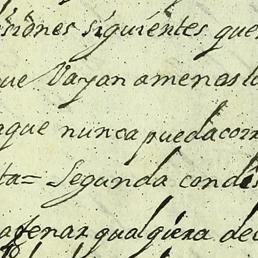 siones siguientes que
que Vayan amenas lo
aque nunca puedacorr
ta= Segunda condis
afenar qualquiera de